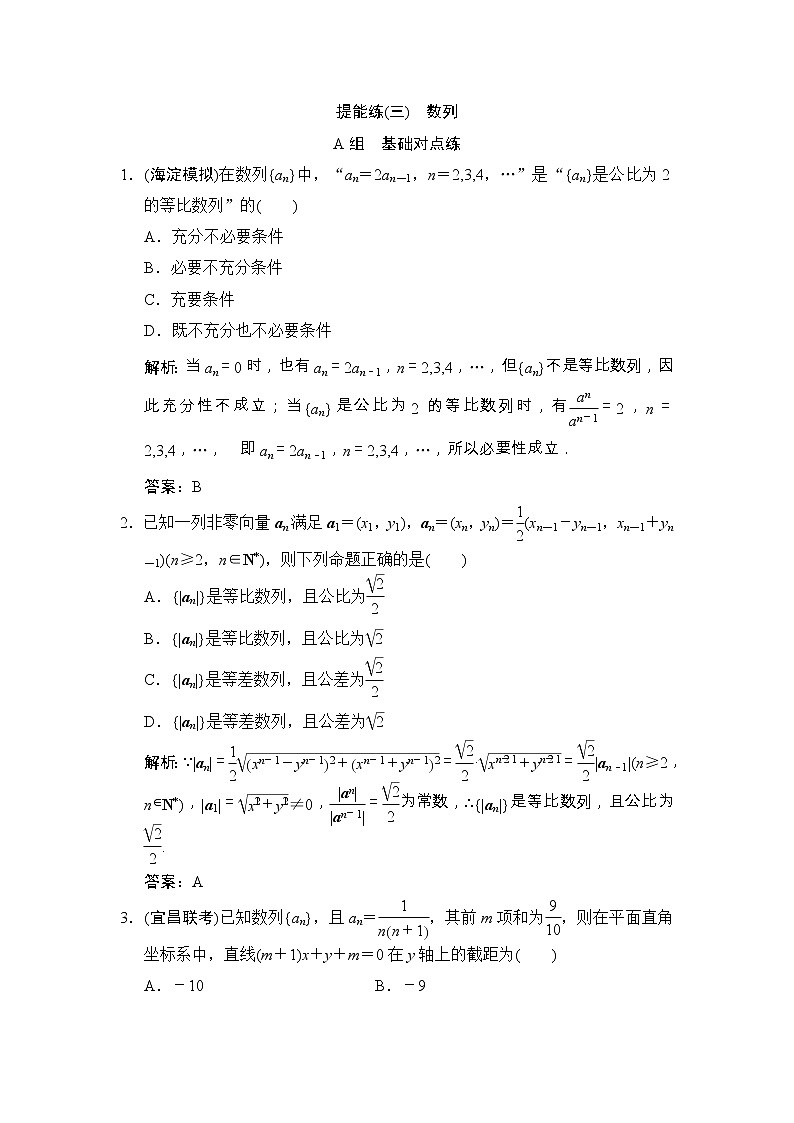 提能练(三)　数列
A组　基础对点练
1．(海淀模拟)在数列{aₙ}中，“aₙ＝2aₙ₋₁，n＝2,3,4，…”是“{aₙ}是公比为2
的等比数列”的(　　)
A．充分不必要条件
B．必要不充分条件
C．充要条件
D．既不充分也不必要条件
解析：当aₙ＝0时，也有aₙ＝2aₙ₋₁，n＝2,3,4，…，但{aₙ}不是等比数列，因
此充分性不成立；当{aₙ}是公比为2的等比数列时，有an/an－1＝2，n＝
2,3,4，…，　即aₙ＝2aₙ₋₁，n＝2,3,4，…，所以必要性成立．
答案：B
2．已知一列非零向量aₙ满足a₁＝(x₁，y₁)，aₙ＝(xₙ，yₙ)＝1/2(xₙ₋₁－yₙ₋₁，xₙ₋₁＋yₙ
₋₁)(n≥2，n∈N*)，则下列命题正确的是(　　)
A．{|aₙ|}是等比数列，且公比为√2/2
B．{|aₙ|}是等比数列，且公比为√2
C．{|aₙ|}是等差数列，且公差为√2/2
D．{|aₙ|}是等差数列，且公差为√2
解析：∵|aₙ|＝1/2√((xn－1－yn－1)2＋(xn－1＋yn－1)2)＝√2/2·√(xn21＋yn21)＝√2/2|aₙ₋₁|(n≥2，
n∈N*)，|a₁|＝√(x12＋y12)≠0，|an|/|an－1|＝√2/2为常数，∴{|aₙ|}是等比数列，且公比为
√2/2.
答案：A
3．(宜昌联考)已知数列{aₙ}，且aₙ＝1/n(n＋1)，其前m项和为9/10，则在平面直角
坐标系中，直线(m＋1)x＋y＋m＝0在y轴上的截距为(　　)
A．－10　　B．－9